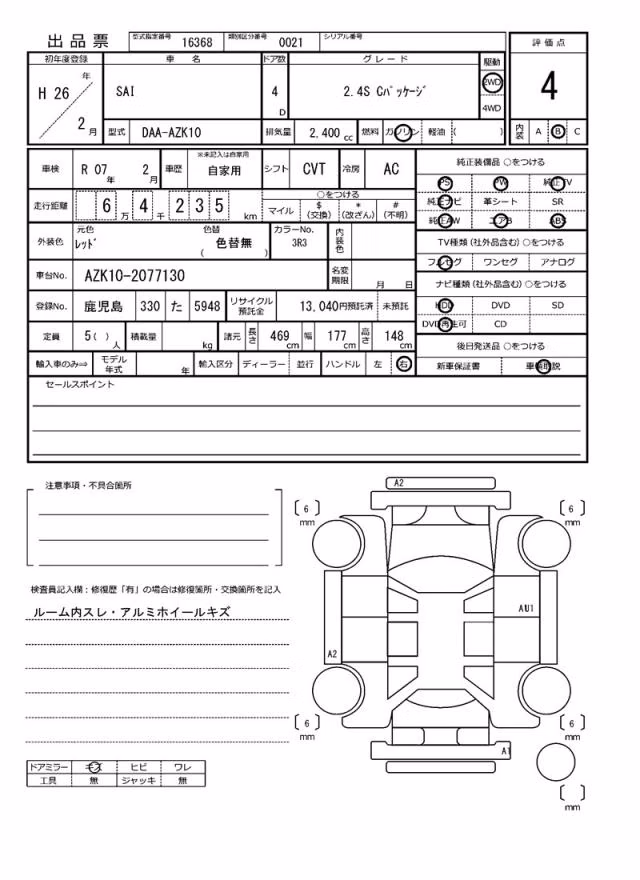 出品票 型式指定番号 16368 類別区分番号 0021 シリアル番号
評価点
4
内装 A B C
初年度登録 車名 ドア数 グレード 駆動
H 26 年 2 月 SAI 4 D 2.4S Cパッケージ 2WD 4WD
型式 DAA-AZK10 排気量 2,400 cc 燃料 ガソリン 軽油 ( )
車検 R 07 年 2 月 車歴 ※未記入は自家用 自家用 シフト CVT 冷房 AC
走行距離 6 万 4 千 2 3 5 km ○をつける
マイル $(交換) *(改ざん) #(不明)
外装色 元色 レッド 色替 ( 色替無 ) カラーNo. 3R3 内装色
車台No. AZK10-2077130 名変期限 月 日
登録No. 鹿児島 330 た 5948 リサイクル預託金 13,040円預託済 未預託
定員 5 ( ) 人 積載量 kg 諸元 長さ 469 cm 幅 177 cm 高さ 148 cm
輸入車のみ⇒ モデル年式 年 輸入区分 ディーラー 並行 ハンドル 左 右
純正装備品 ○をつける
PS PW 純正TV
純正ナビ 革シート SR
純正AW エアB ABS
TV種類(社外品含む) ○をつける
フルセグ ワンセグ アナログ
ナビ種類(社外品含む) ○をつける
HDD DVD SD
DVD再生可 CD
後日発送品 ○をつける
新車保証書 車輌取説
セールスポイント
注意事項・不具合箇所
検査員記入欄:修復歴「有」の場合は修復箇所・交換箇所を記入
ルーム内スレ・アルミホイールキズ
ドアミラー キズ ヒビ ワレ
工具 無 ジャッキ 無
A2
[ 6 ] mm
[ 6 ] mm
AU1
A2
[ 6 ] mm
[ 6 ] mm
A1
[ ] mm